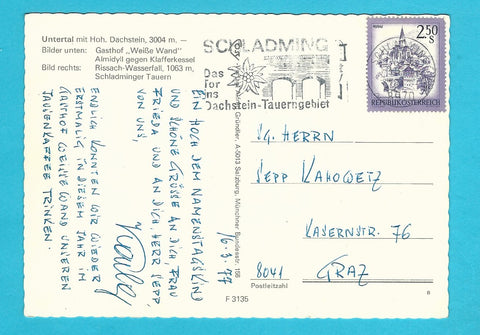 Untertal mit Hoh. Dachstein, 3004 m. —
Bilder unten: Gasthof „Weiße Wand"
Almidyll gegen Klafferkessel
Bild rechts: Rissach-Wasserfall, 1063 m,
Schladminger Tauern
SCHLADMING
Das
Tor
ins
Dachstein-Tauerngebiet
2.50 S
REPUBLIK ÖSTERREICH
8970
EIN HOCH DEM NAMENSTAGSKIND
UND SCHÖNE GRÜSSE AN DICH, FRAU
FRIEDA UND AN DICH, HERR SEPP,
VON UNS,
ENDLICH KONNTEN WIR WIEDER
ERSTMALIG IN DIESEM JAHR IM
GASTHOF WEISSE WAND UNSEREN
TAUERNKAFFEE TRINKEN.
16.3.77
Gründler, A-5013 Salzburg, Münchner Bundesstr. 156
SG. HERRN
SEPP KAHOWETZ
KASERNSTR. 76
8041 GRAZ
Postleitzahl
F 3135